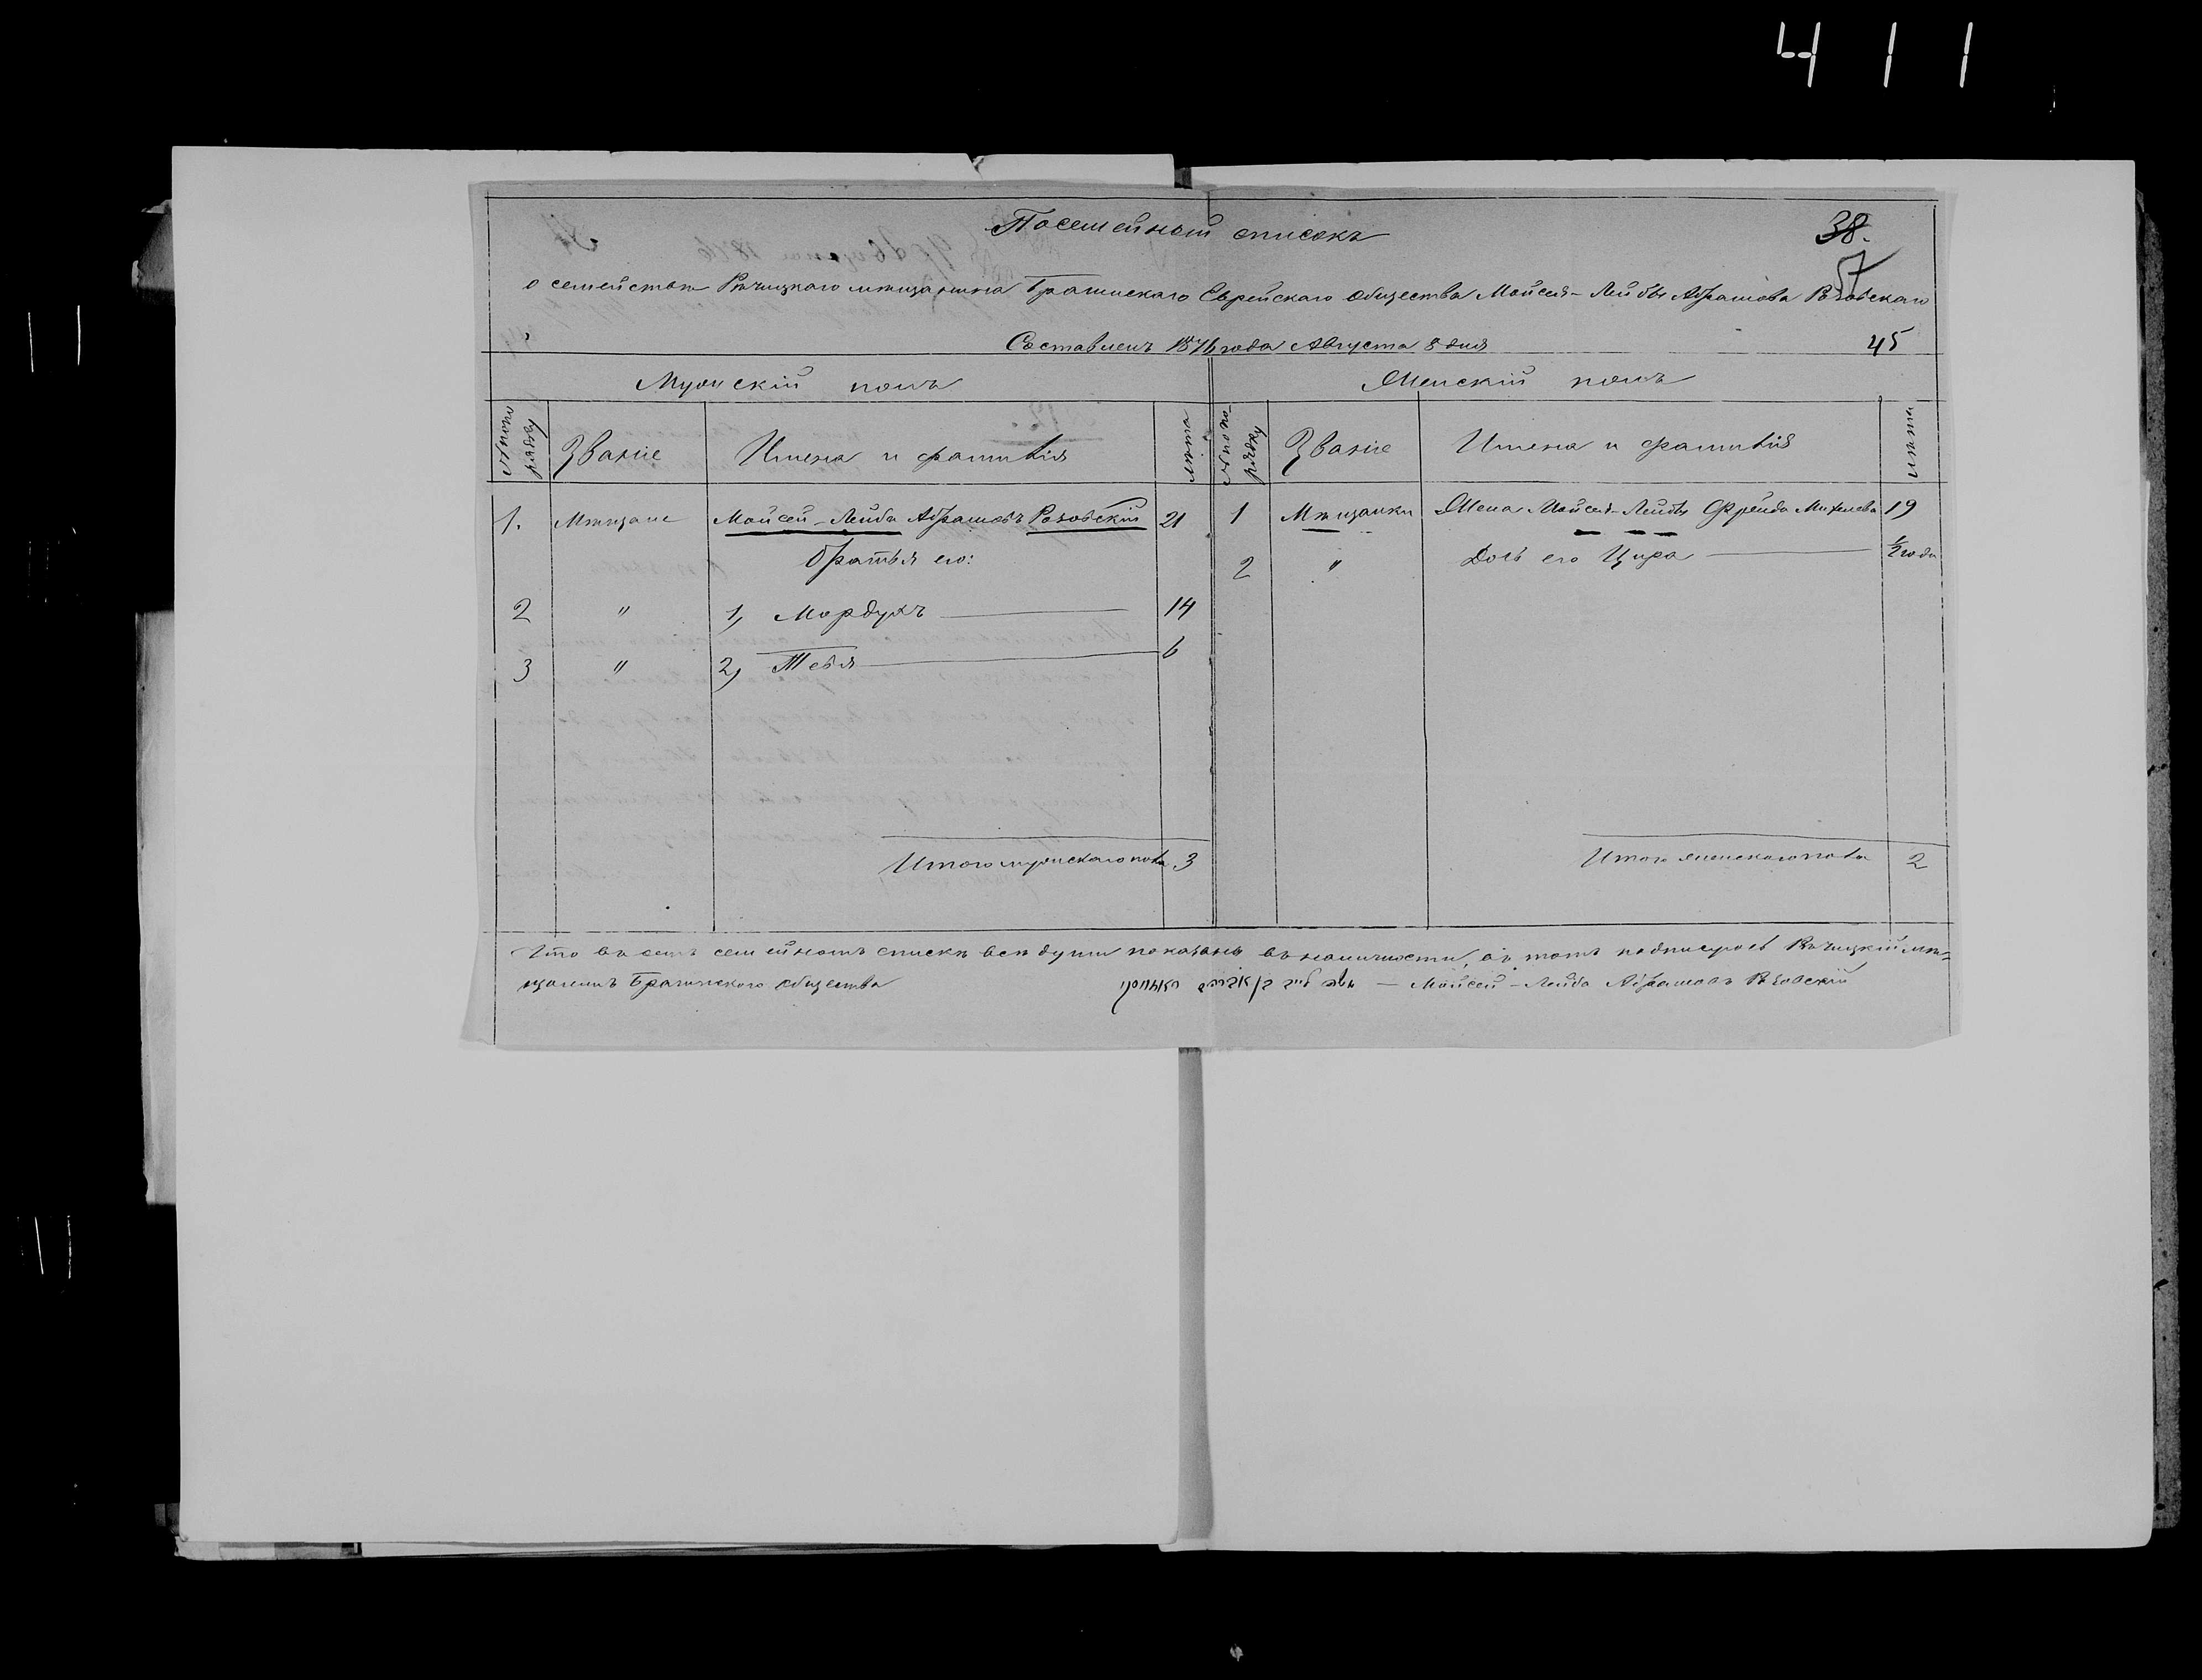 411
Посемейный списокъ
38.
57
о семействѣ Рѣчицкаго мѣщанина Брагинскаго Еврейскаго Общества Мойсея-Лейбы Абрамова Розовскаго
Составленъ 1876 года Августа 8 дня
45
Мужскій полъ
Женскій полъ
№ по порядку Званіе Имена и фамилія лѣта № по порядку Званіе Имена и фамилія лѣта
1. Мѣщане Мойсей-Лейба Абрамовъ Розовскій 21 1 Мѣщанки Жена Мойсея-Лейбы Фрейда Михелева 19
Братья его: 2 " Дочь его Цира ½ года
2 " 1, Мордухъ 14
3 " 2, Тевя 6
Итого мужскаго пола 3 Итого женскаго пола 2
Что въ семъ семейномъ спискѣ всѣ души показаны въ наличности, въ томъ подписуюсь Рѣчицкій мѣ-
щанинъ Брагинскаго общества — Мойсей-Лейба Абрамовъ Розовскій